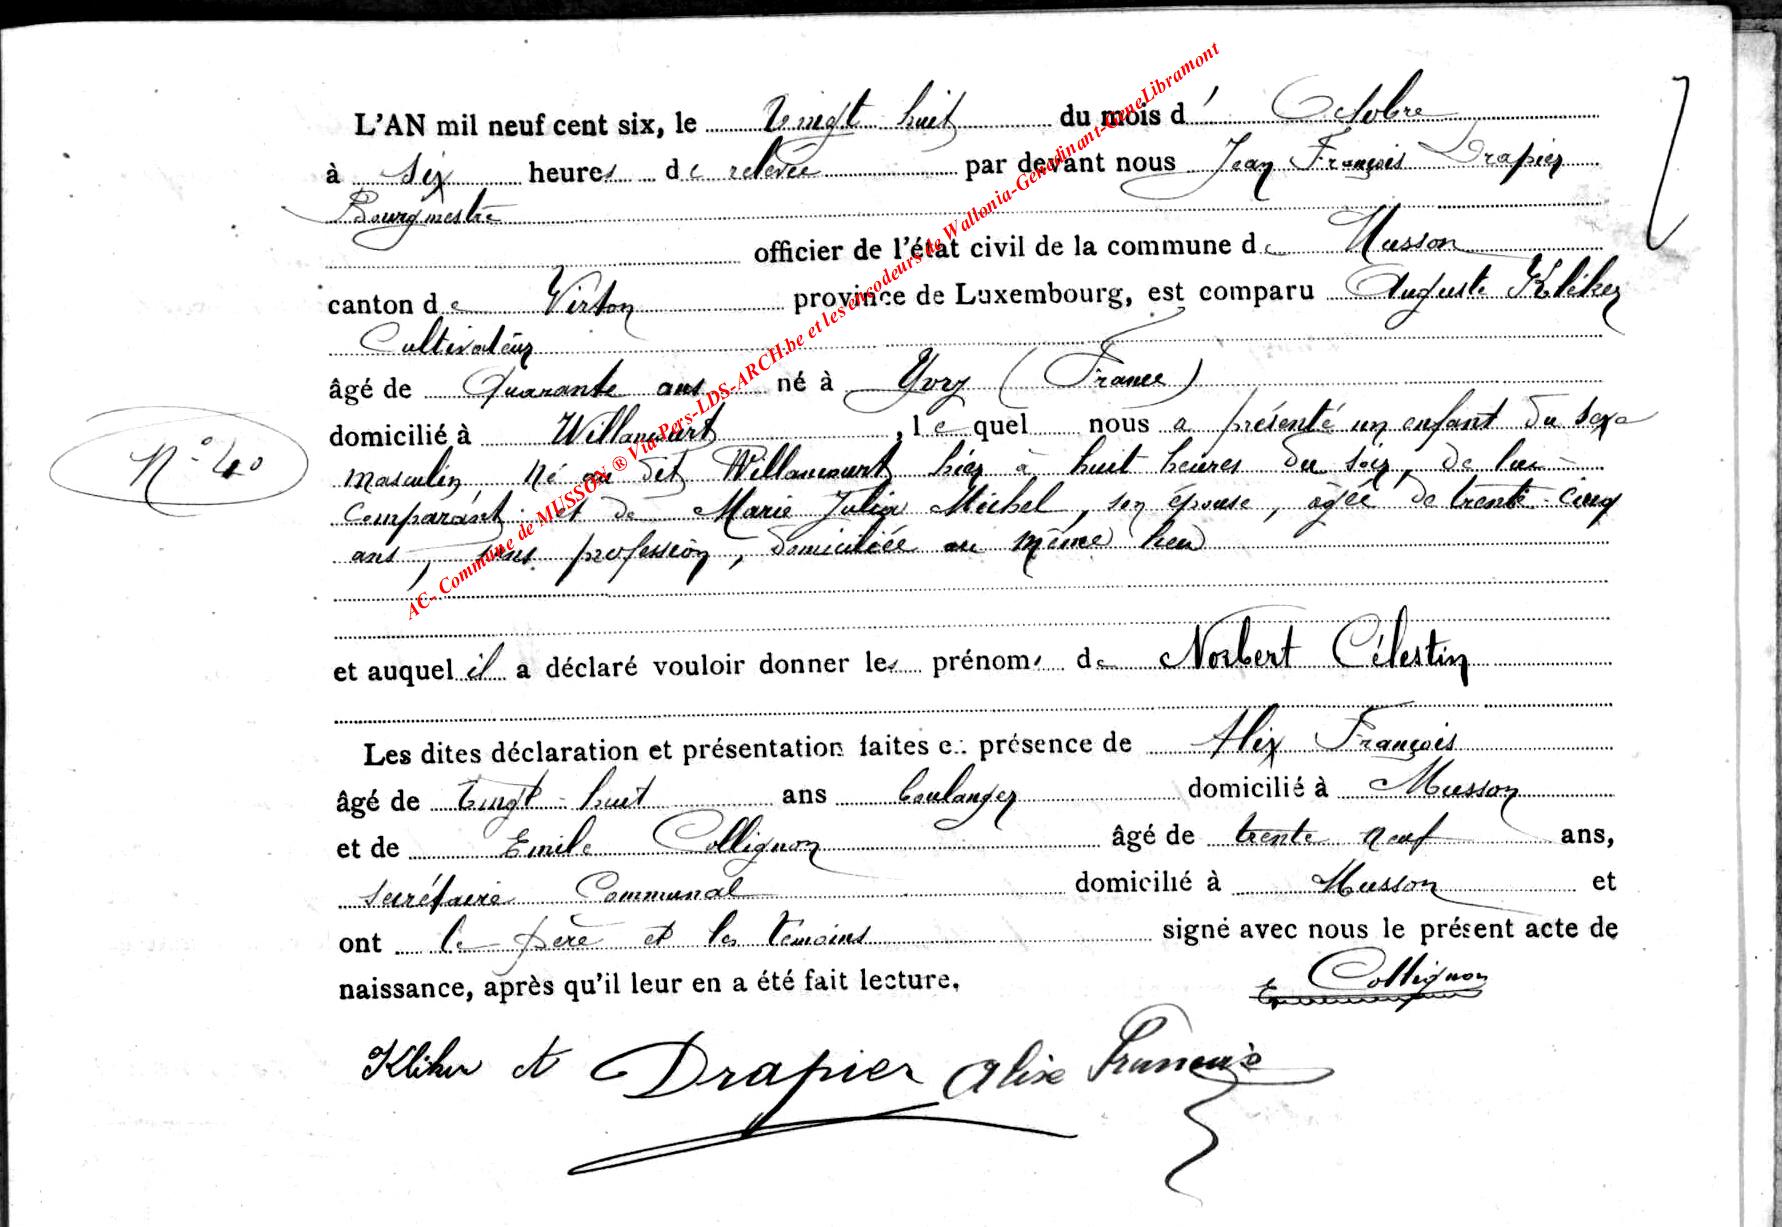 L'AN mil neuf cent six, le vingt huit du mois d' Octobre
à six heures de relevée par devant nous Jean François Drapier
Bourgmestre
officier de l'état civil de la commune de Musson
canton de Virton province de Luxembourg, est comparu Auguste Kliker
Cultivateur
âgé de Quarante ans né à Yvry (France)
domicilié à Willancourt, lequel nous a présenté un enfant du sexe
N° 40
masculin, né au dit Willancourt hier à huit heures du soir, de lui-
comparant et de Marie Julia Michel, son épouse, âgée de trente-cinq
ans, sans profession, domiciliée au même lieu
et auquel il a déclaré vouloir donner les prénoms de Norbert Célestin
Les dites déclaration et présentation faites en présence de Alix François
âgé de vingt-huit ans boulanger domicilié à Musson
et de Emile Collignon âgé de trente neuf ans,
secrétaire Communal domicilié à Musson et
ont le père et les témoins signé avec nous le présent acte de
naissance, après qu'il leur en a été fait lecture.
E. Collignon
Kliker A Drapier Alixe Francois
AC- Commune de MUSSON ® Via Pers-LDS-ARCH.be et les encodeurs de Wallonia-Genedinant-GeneLibramont